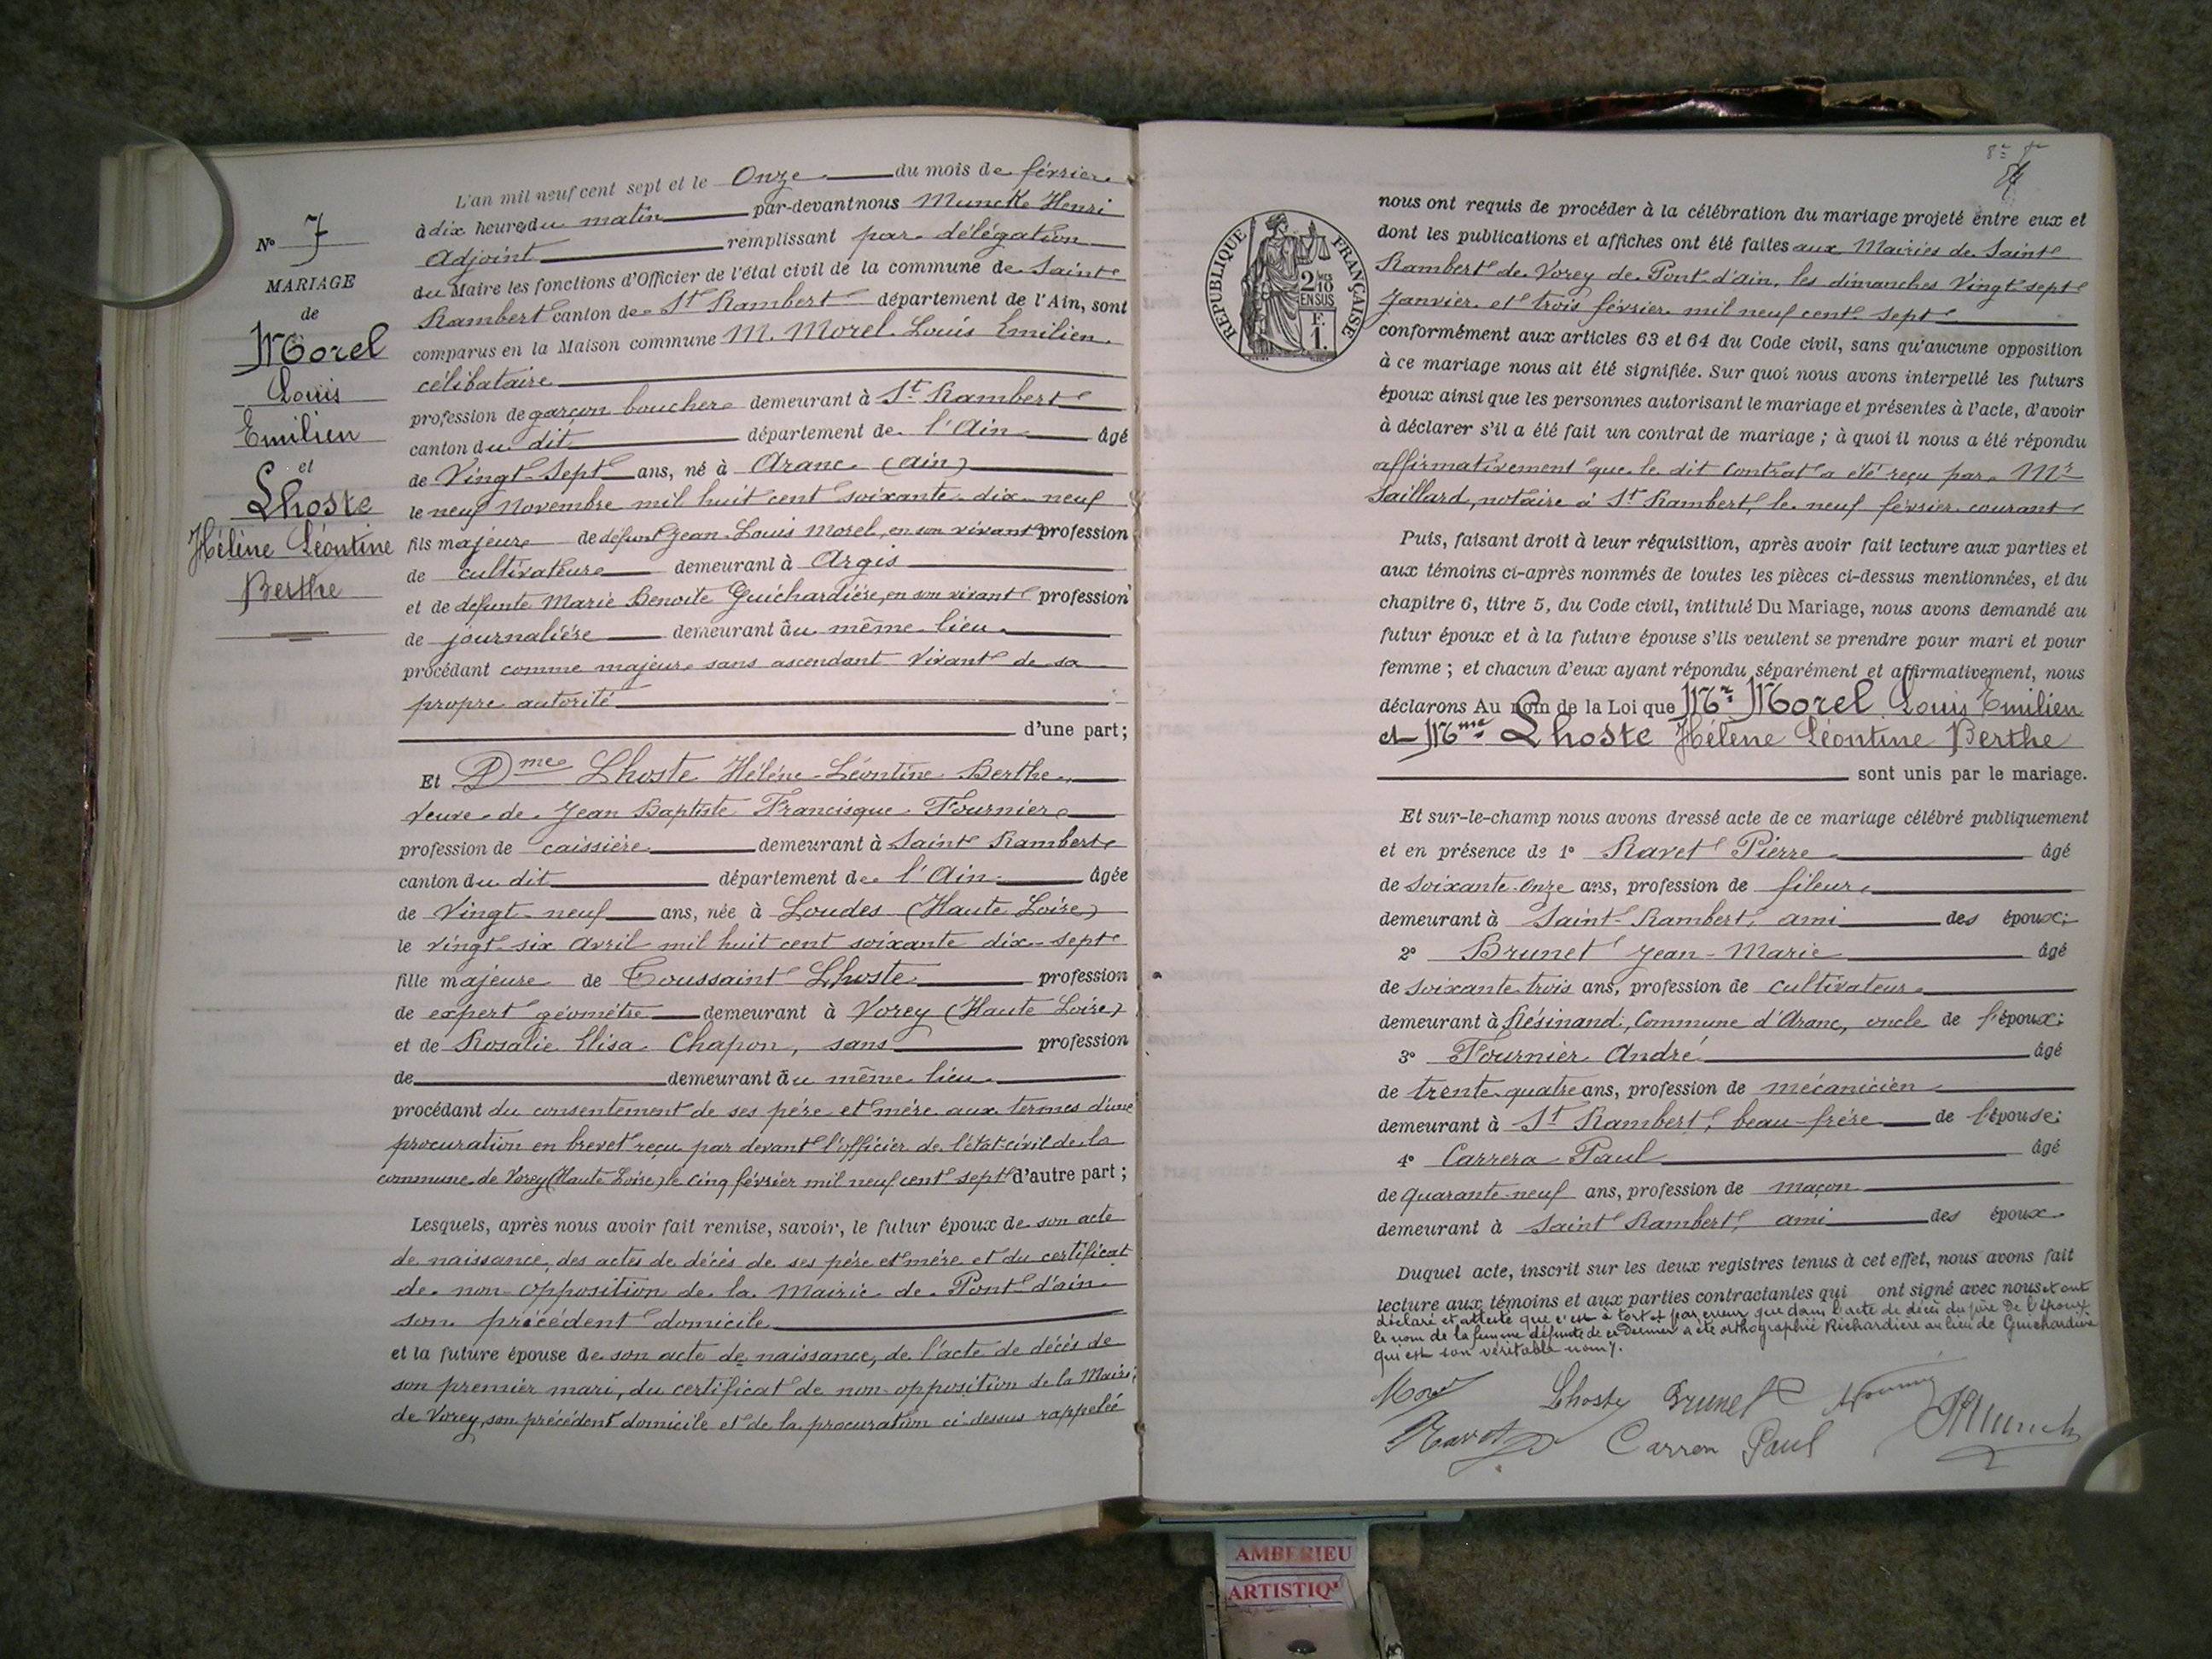 N° 7
MARIAGE
de
Morel
Louis
Emilien
et
Lhoste
Hélène Léontine
Berthe
L'an mil neuf cent sept et le Onze du mois de février
à dix heures du matin par-devant nous Muncke Henri
Adjoint remplissant par délégation
du Maire les fonctions d'Officier de l'état civil de la commune de Saint
Rambert canton de St Rambert département de l'Ain, sont
comparus en la Maison commune M. Morel Louis Emilien
célibataire
profession de garçon boucher demeurant à St Rambert
canton du dit département de l'Ain âgé
de Vingt-Sept ans, né à Aranc (ain)
le neuf Novembre mil huit cent soixante-dix-neuf
fils majeur de défunt Jean-Louis Morel, en son vivant profession
de cultivateur demeurant à Argis
et de défunte Marie Benoite Guichardière, en son vivant profession
de journalière demeurant au même lieu
procédant comme majeur sans ascendant vivant de sa
propre autorité
d'une part;
Et Dme Lhoste Hélène Léontine Berthe,
veuve de Jean Baptiste Francisque Fournier
profession de caissière demeurant à Saint Rambert
canton du dit département de l'Ain âgée
de Vingt-neuf ans, née à Loudes (Haute Loire)
le vingt-six Avril mil huit cent soixante dix-sept
fille majeure de Toussaint Lhoste profession
de expert géomètre demeurant à Vorey (Haute Loire)
et de Rosalie Elisa Chapon, sans profession
de demeurant au même lieu
procédant du consentement de ses père et mère aux termes d'une
procuration en brevet reçu par devant l'officier de l'état-civil de la
commune de Vorey (Haute Loire) le cinq février mil neuf cent sept d'autre part;
Lesquels, après nous avoir fait remise, savoir, le futur époux de son acte
de naissance, des actes de décès de ses père et mère et du certificat
de non-opposition de la Mairie de Pont-d'ain
son précédent domicile
et la future épouse de son acte de naissance, de l'acte de décès de
son premier mari, du certificat de non-opposition de la Mairie
de Vorey, son précédent domicile et de la procuration ci-dessus rappelée
8e
RÉPUBLIQUE FRANÇAISE
2 MES
10
EN SUS
F.
1.
nous ont requis de procéder à la célébration du mariage projeté entre eux et
dont les publications et affiches ont été faites aux Mairies de Saint
Rambert de Vorey de Pont-d'ain, les dimanches Vingt-sept
Janvier et trois février mil neuf cent sept
conformément aux articles 63 et 64 du Code civil, sans qu'aucune opposition
à ce mariage nous ait été signifiée. Sur quoi nous avons interpellé les futurs
époux ainsi que les personnes autorisant le mariage et présentes à l'acte, d'avoir
à déclarer s'il a été fait un contrat de mariage; à quoi il nous a été répondu
affirmativement que le dit Contrat a été reçu par Mr
Saillard, notaire à St Rambert, le neuf février courant
Puis, faisant droit à leur réquisition, après avoir fait lecture aux parties et
aux témoins ci-après nommés de toutes les pièces ci-dessus mentionnées, et du
chapitre 6, titre 5, du Code civil, intitulé Du Mariage, nous avons demandé au
futur époux et à la future épouse s'ils veulent se prendre pour mari et pour
femme; et chacun d'eux ayant répondu séparément et affirmativement, nous
déclarons Au nom de la Loi que Mr Morel Louis Emilien
et Mme Lhoste Hélène Léontine Berthe
sont unis par le mariage.
Et sur-le-champ nous avons dressé acte de ce mariage célébré publiquement
et en présence de 1° Ravet Pierre âgé
de soixante-onze ans, profession de fileur
demeurant à Saint-Rambert, ami des époux;
2° Brunet Jean-Marie âgé
de soixante-trois ans, profession de cultivateur
demeurant à Résinand, Commune d'Aranc, oncle de l'époux;
3° Fournier André âgé
de trente-quatre ans, profession de mécanicien
demeurant à St Rambert, beau-frère de l'épouse;
4° Carrera Paul âgé
de quarante-neuf ans, profession de maçon
demeurant à Saint Rambert, ami des époux
Duquel acte, inscrit sur les deux registres tenus à cet effet, nous avons fait
lecture aux témoins et aux parties contractantes qui ont signé avec nous et ont
déclaré et attesté que c'est à tort et par erreur que dans l'acte de décès du père de l'époux
le nom de la femme défunte de ce dernier a été orthographié Richardière au lieu de Guichardière
qui est son véritable nom.
Morel Lhoste Brunet Fournier
Ravet Carrera Paul HMunck
AMBERIEU
ARTISTIQ